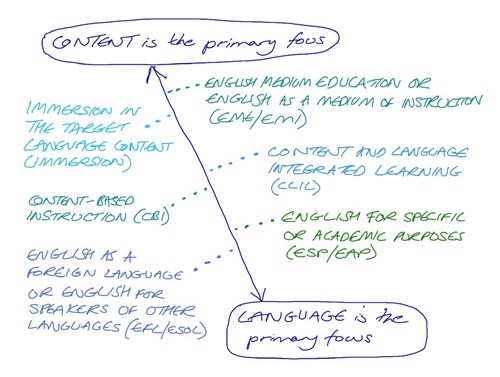 CONTENT is the primary focus
ENGLISH MEDIUM EDUCATION OR
ENGLISH AS A MEDIUM OF INSTRUCTION
(EME/EMI)
IMMERSION IN
THE TARGET
LANGUAGE CONTENT
(IMMERSION)
CONTENT AND LANGUAGE
INTEGRATED LEARNING
(CLIL)
CONTENT-BASED
INSTRUCTION (CBI)
ENGLISH FOR SPECIFIC
OR ACADEMIC PURPOSES
(ESP/EAP)
ENGLISH AS A
FOREIGN LANGUAGE
OR ENGLISH FOR
SPEAKERS OF OTHER
LANGUAGES (EFL/ESOL)
LANGUAGE is the
primary focus